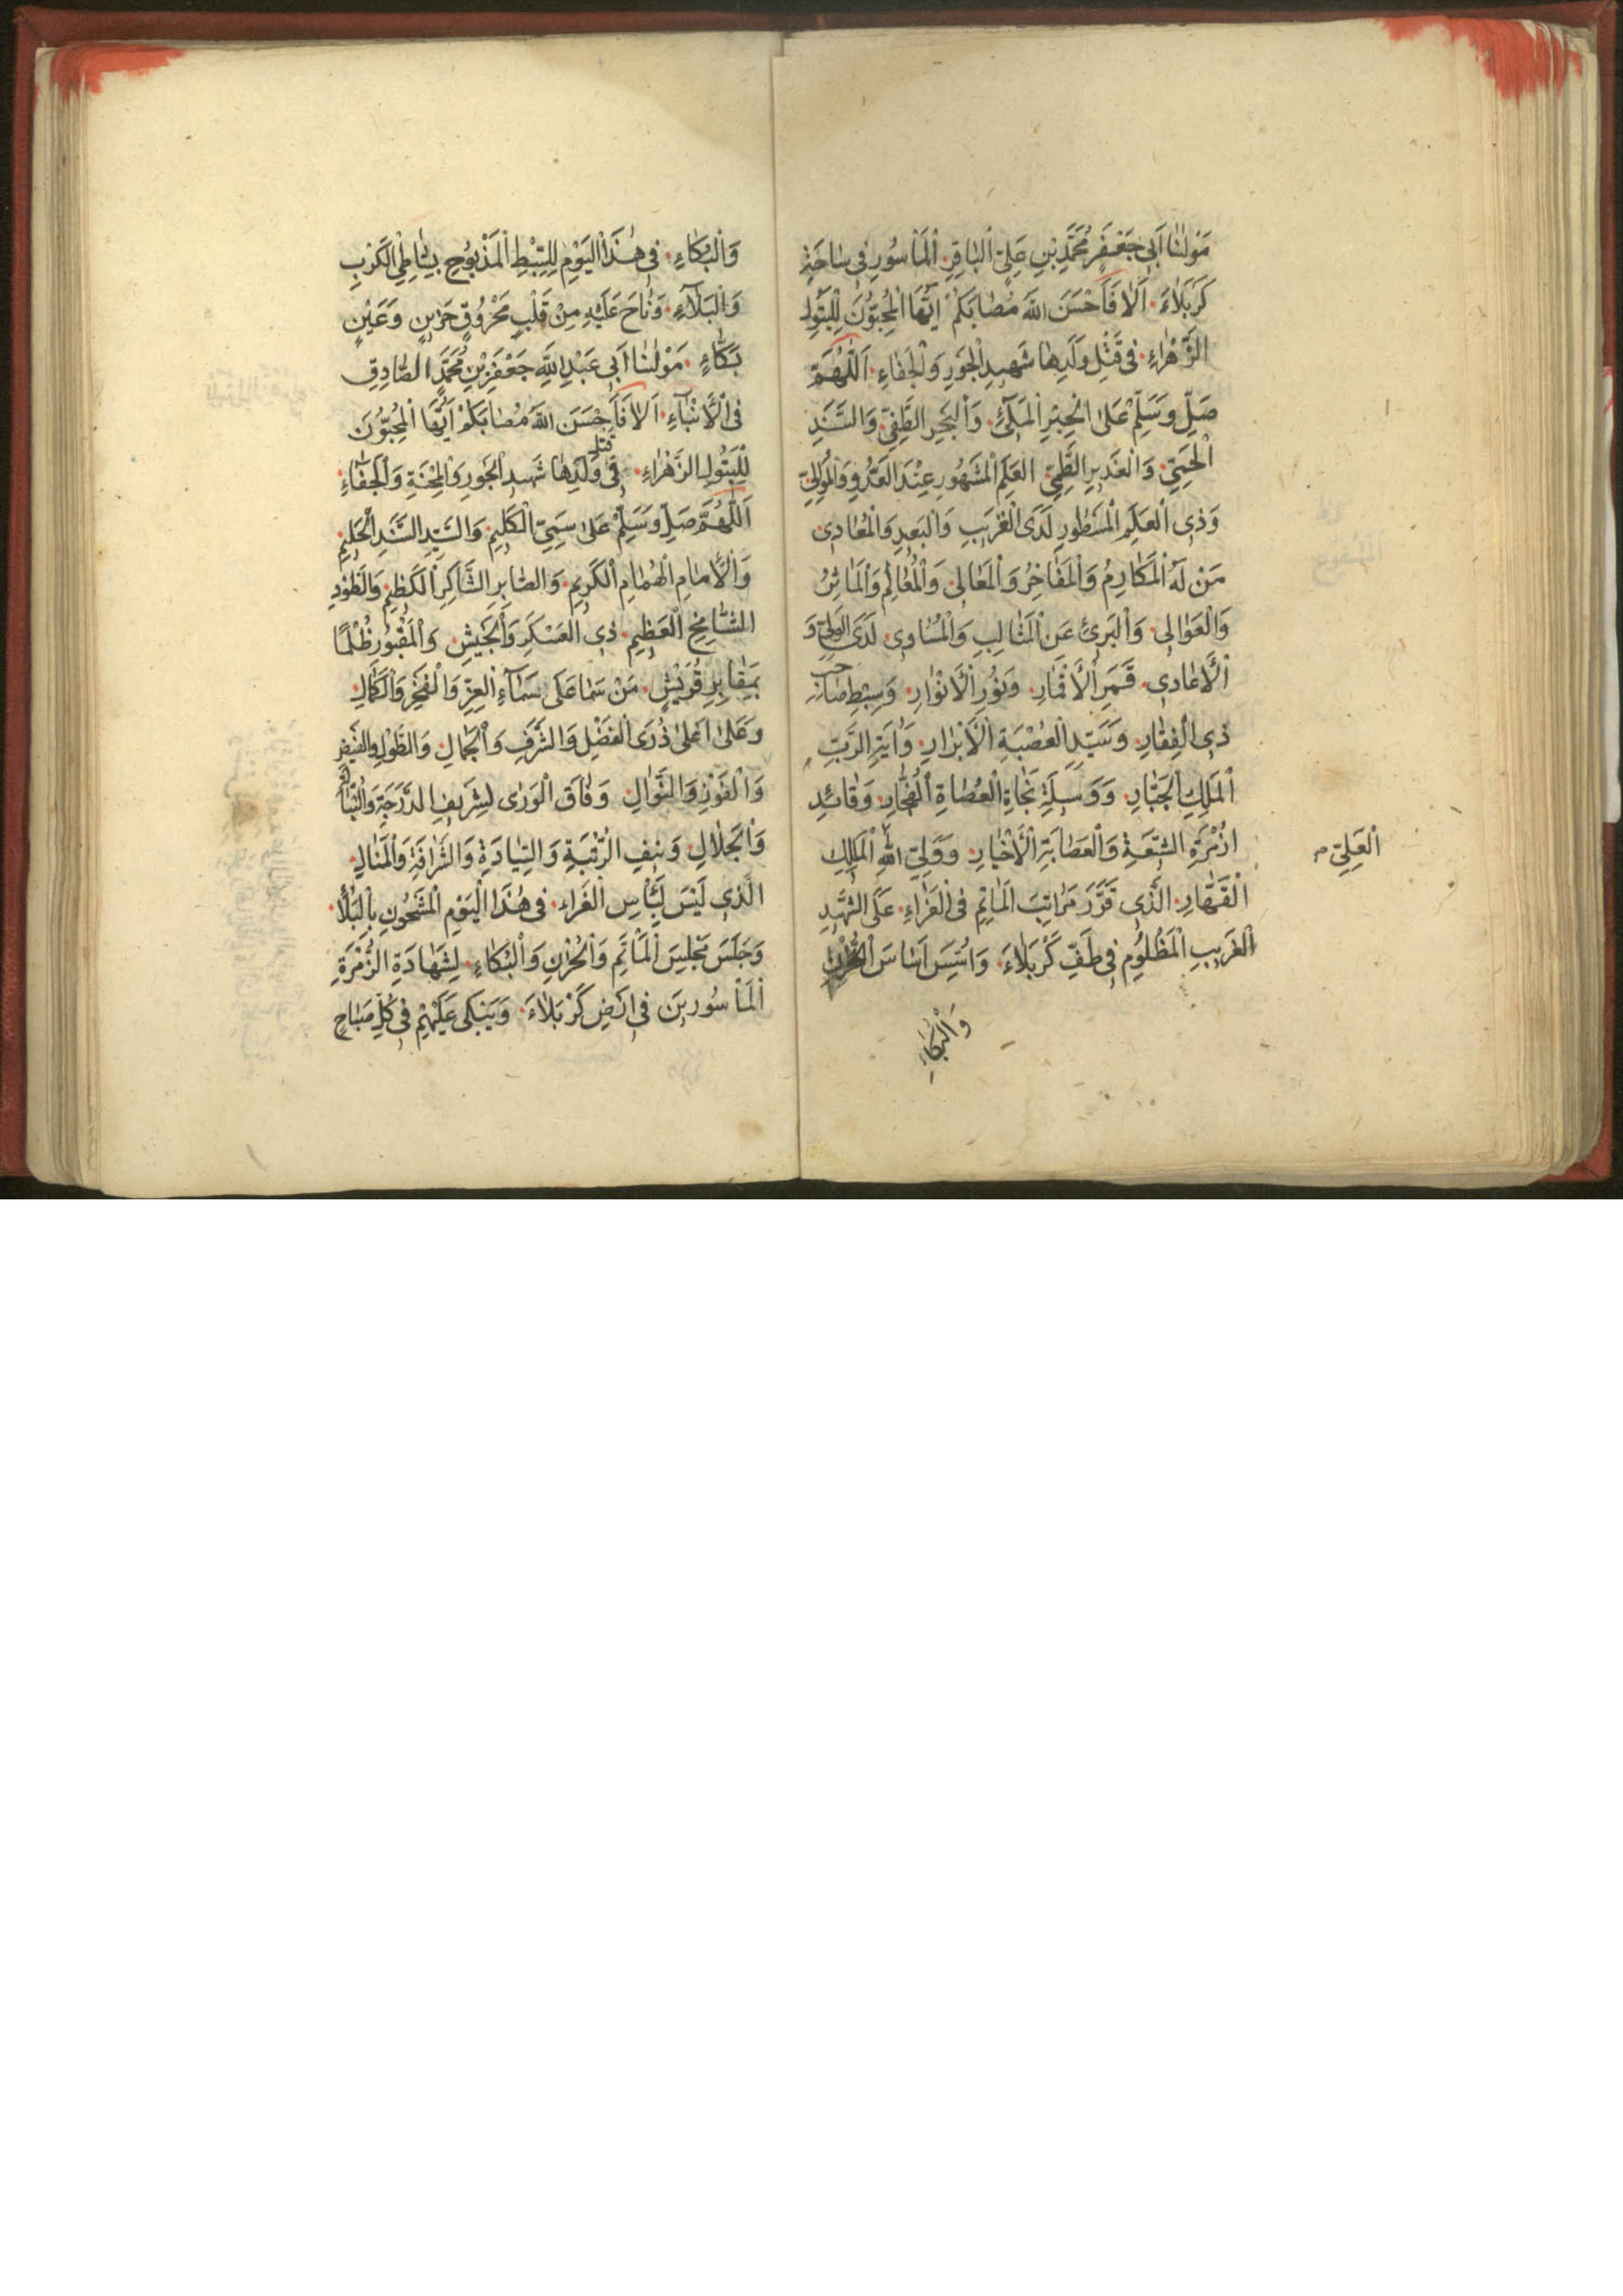 مَوْلٰنٰا اَبِي جَعْفَرٍ مُحَمَّدِ بْنِ عَلِيٍّ اَلْبٰاقِرِ اَلْمَأْسُورِ فِي سٰاحَةِ
كَرْبَلٰاءَ اَلٰا فَاَحْسَنَ اللهُ مُصٰابَكُمْ اَيُّهَا الْمُحِبُّونَ لِلْبَتُولِ
الزَّهْرٰاءِ فِي قَتْلِ وَلَدِهٰا شَهِيدِ الْجَوْرِ وَالْجَفٰاءِ اَللّٰهُمَّ
صَلِّ وَسَلِّمْ عَلٰى الْحِبْرِ الْمَلِيِّ وَالْبَحْرِ الطَّفِيِّ وَالسَّنَدِ
الْحَمِيِّ وَالْغَدِيرِ الطَّمِيِّ الْعَلَمِ الْمَشْهُورِ عِنْدَ الْعَدُوِّ وَالْمُوٰالِيِّ
وَذِي الْعَلَمِ الْمَسْطُورِ لَدَى الْقَرِيبِ وَالْبَعِيدِ وَالْمُعٰادِي
مَنْ لَهُ الْمَكٰارِمُ وَالْمَفٰاخِرُ وَالْمَعٰالِي وَالْمَعٰالِمُ وَالْمَاٰثِرُ
وَالْعَوٰالِي وَالْبَرِئِ عَنِ الْمَثٰالِبِ وَالْمَسٰاوِي لَدَى الْوَلِيِّ وَ
الْاَعٰادِي قَمَرِ الْاَقْمٰارِ وَنُورِ الْاَنْوٰارِ وَسِبْطِ صٰاحِبِ
ذِي الْفِقٰارِ وَسَيِّدِ الْعُصْبَةِ الْاَبْرٰارِ وَاٰيَةِ الرَّبِّ
الْمَلِكِ الْجَبّٰارِ وَوَسِيلَةِ نَجٰاةِ الْعُصٰاةِ الْفُجّٰارِ وَقٰائِدِ
ازُمْرَةِ الشِّيعَةِ وَالْعِصٰابَةِ الْاَخْيٰارِ وَوَلِيِّ اللهِ الْمَلِكِ
الْعَلِيِّ م
الْقَهّٰارِ الَّذِي قَرَّرَ مَرٰاتِبَ الْمَاٰتِمِ فِي الْعَزٰاءِ عَلَى الشَّهِيدِ
الْغَرِيبِ الْمَظْلُومِ فِي طَفِّ كَرْبَلٰاءَ وَاَسَّسَ اَسٰاسَ الْحُزْنِ
وَالْبُكٰاءِ
وَالْبُكٰاءِ فِي هٰذَا الْيَوْمِ لِلسِّبْطِ الْمَذْبُوحِ بِشٰاطِي الْكَرْبِ
وَالْبَلٰآءِ وَنٰاحَ عَلَيْهِ مِنْ قَلْبٍ مَحْرُوقٍ حَزِينٍ وَعَيْنٍ
بَكّٰاءٍ مَوْلٰنٰا اَبِي عَبْدِ اللهِ جَعْفَرِ بْنِ مُحَمَّدٍ الصّٰادِقِ
فِي الْاَنْبٰآءِ اَلٰا فَاَحْسَنَ اللهُ مُصٰابَكُمْ اَيُّهَا الْمُحِبُّونَ
لِلْبَتُولِ الزَّهْرٰاءِ فِي قتل وَلَدِهٰا شَهِيدِ الْجَوْرِ وَالْمِحْنَةِ وَالْجَفٰاءِ
اَللّٰهُمَّ صَلِّ وَسَلِّمْ عَلٰى سَمِيِّ الْكَلِيمِ وَالسَّيِّدِ السَّنَدِ الْحَلِيمِ
وَالْاِمٰامِ الْهُمٰامِ الْكَرِيمِ وَالصّٰابِرِ الشّٰاكِرِ الْكَظِيمِ وَالطَّوْدِ
الشّٰامِخِ الْعَظِيمِ ذِي الْعَسْكَرِ وَالْجَيْشِ وَالْمَقْبُورِ ظُلْمًا
بِمَقٰابِرِ قُرَيْشٍ مَنْ سَمٰا عَلٰى سَمٰآءِ الْعِزِّ وَالْفَخْرِ وَالْكَمٰالِ
وَعَلٰى اَعْلٰى ذُرَى الْفَضْلِ وَالشَّرَفِ وَالْجَمٰالِ وَالطَّوْلِ وَالْفَيْضِ
وَالْفَوْزِ وَالنَّوٰالِ وَفٰاقَ الْوَرٰى لِشَرِيفِ الدَّرَجَةِ وَالنَّبٰاهَةِ
وَالْجَلٰالِ وَنِيفِ الرُّتْبَةِ وَالسِّيٰادَةِ وَالشَّرٰافَةِ وَالْمَنٰالِ
الَّذِي لَيْسَ لِبٰاسِ الْعَزٰاءِ فِي هٰذَا الْيَوْمِ الْمَشْحُونِ بِالْبَلٰاءِ
وَجَلَسَ مَجْلِسَ الْمَأْتَمِ وَالْحُزْنِ وَالْبُكٰاءِ لِشَهٰادَةِ الزُّمْرَةِ
الْمَأْسُورِينَ فِي اَرْضِ كَرْبَلٰاءَ وَيَبْكِي عَلَيْهِمْ فِي كُلِّ صَبٰاحٍ